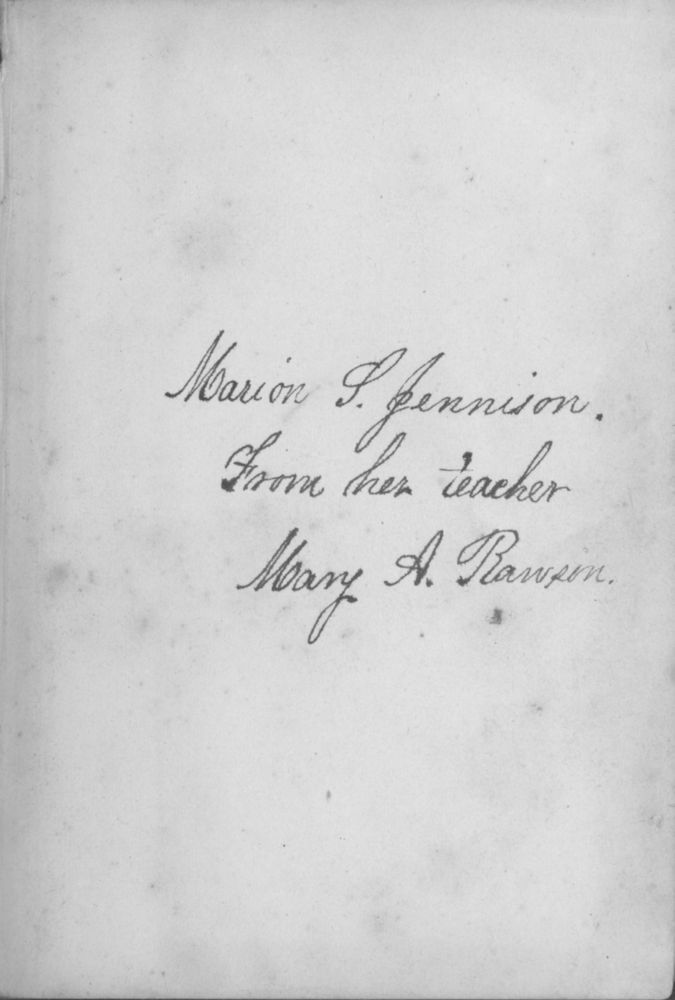 Marion S. Jennison.
From her teacher
Mary A. Rawson.